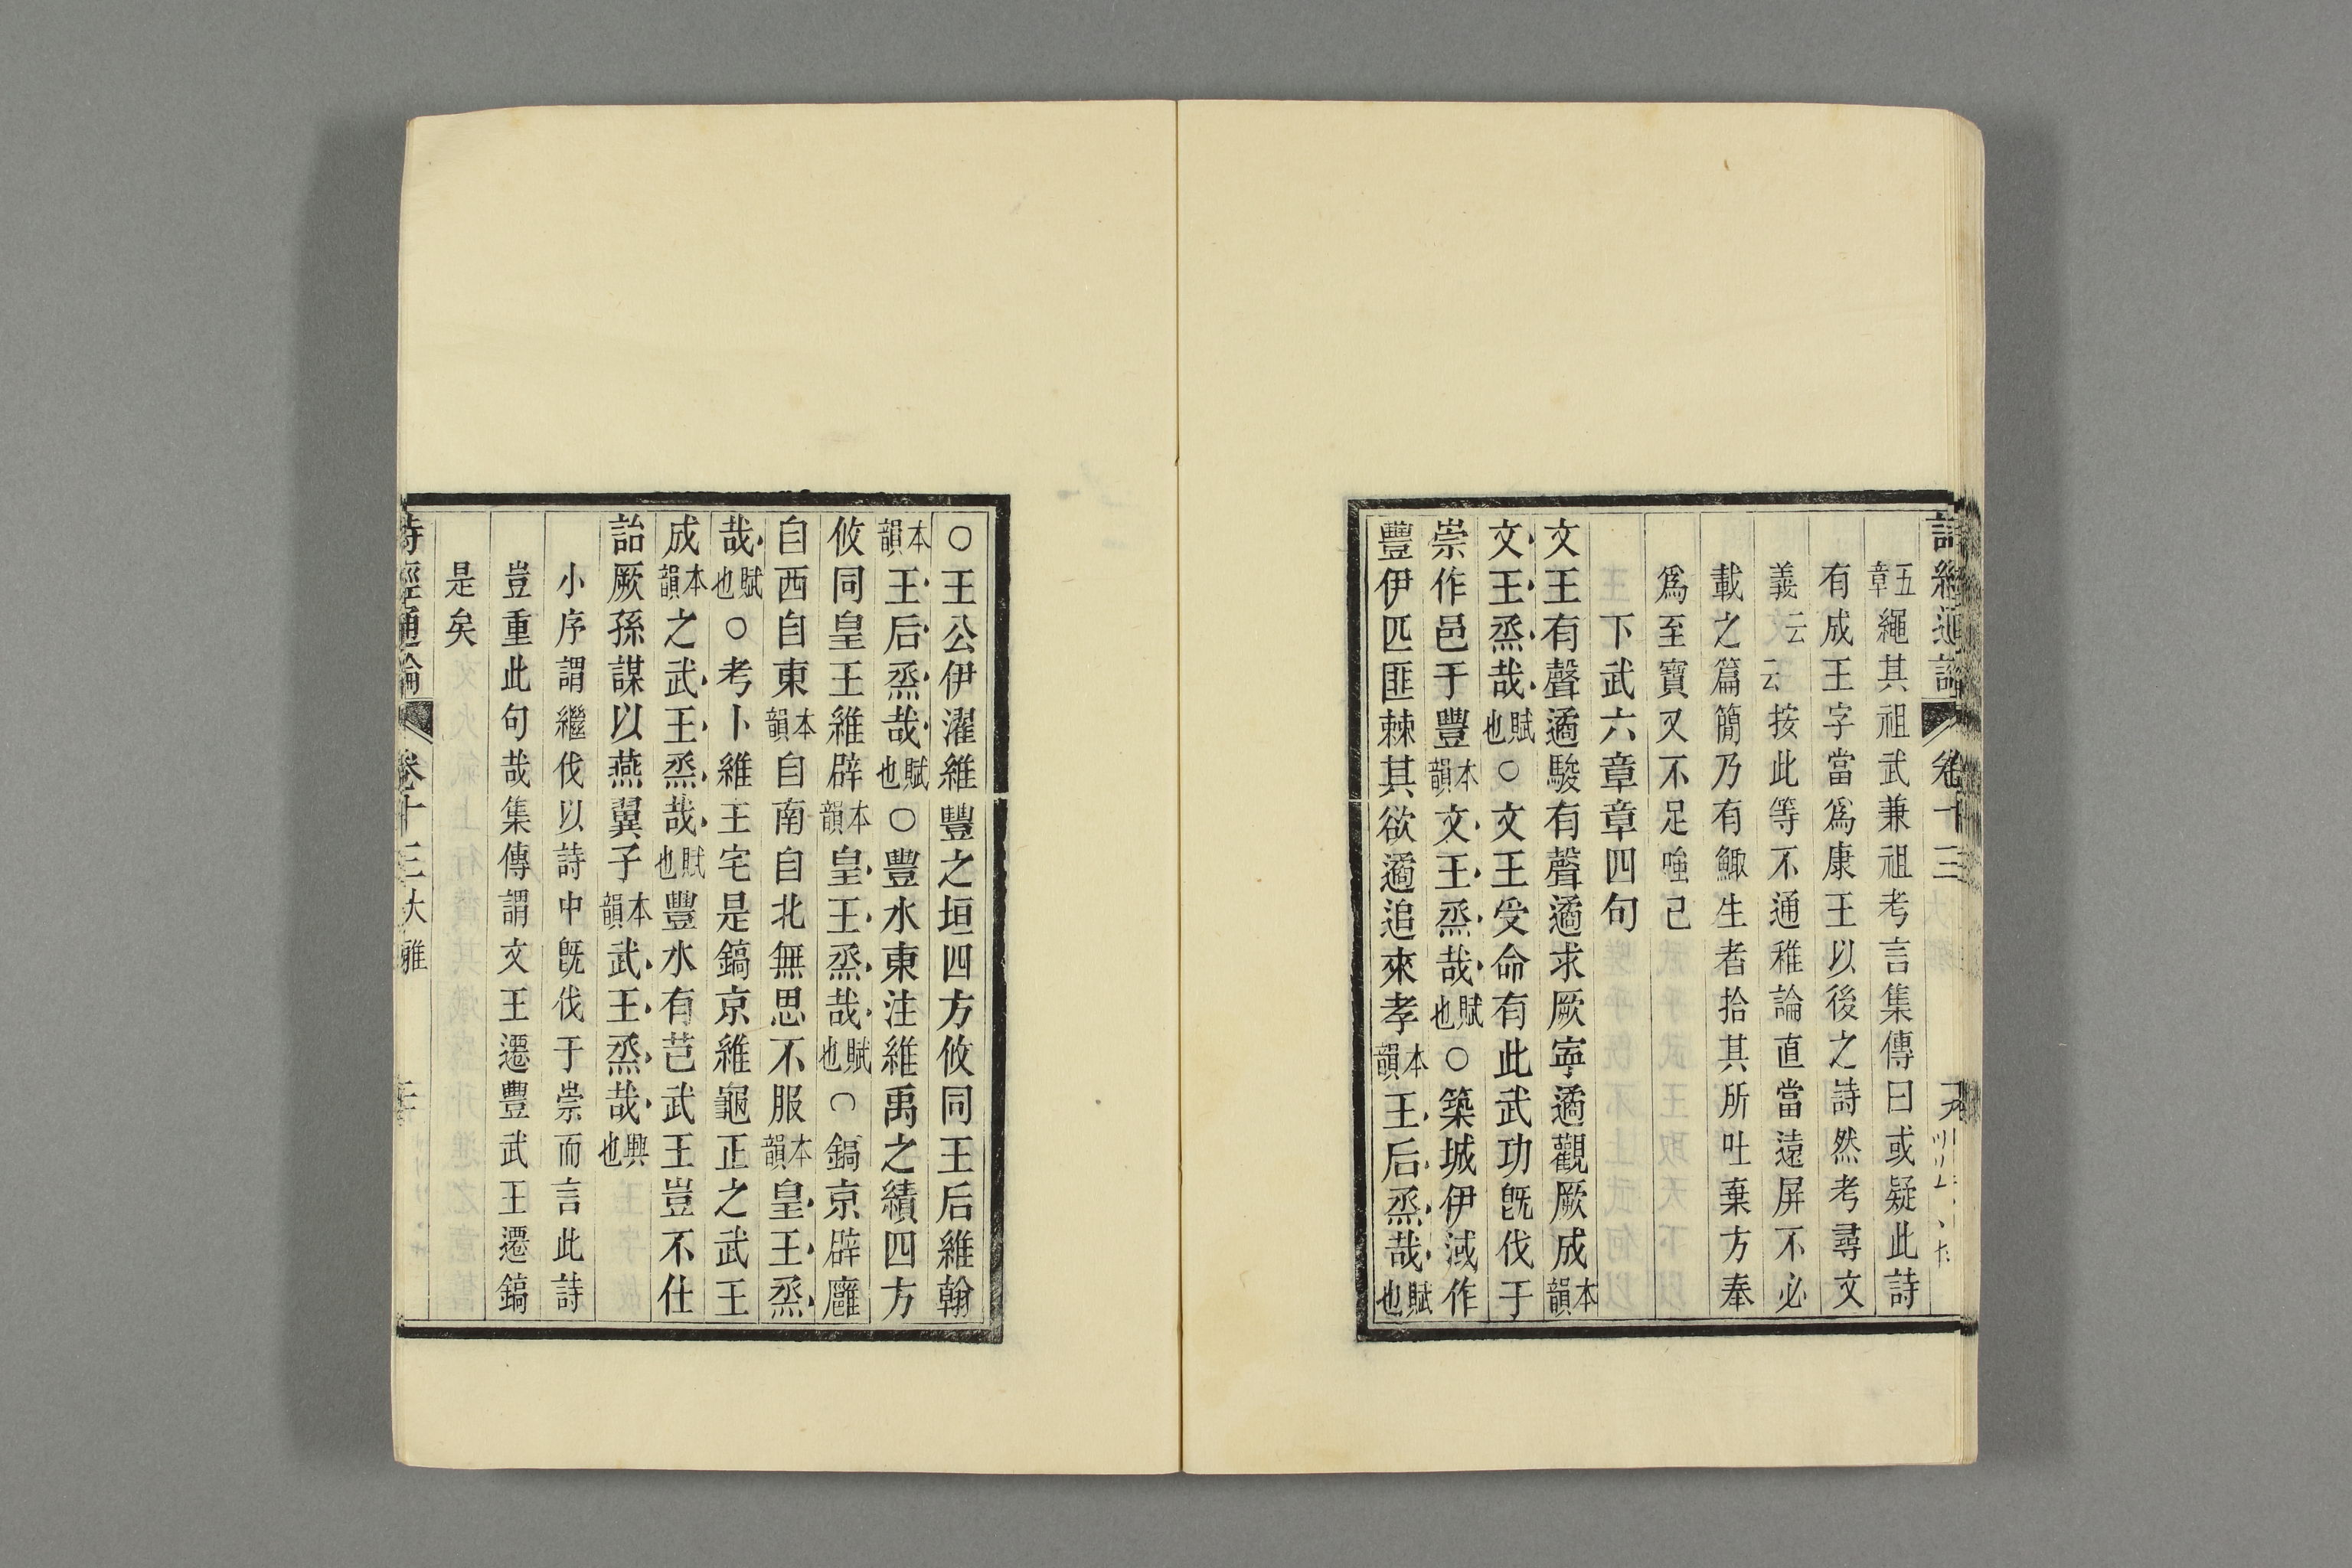 詩經通論 卷十三
五章繩其祖武兼祖考言集傳曰或疑此詩
有成王字當爲康王以後之詩然考尋文
義云云按此等不通稚論直當遠屏不必
載之篇簡乃有鯫生者拾其所吐棄方奉
爲至寶又不足嗤已
下武六章章四句
文王有聲遹駿有聲遹求厥寧遹觀厥成本韻
文王烝哉賦也○文王受命有此武功旣伐于
崇作邑于豐本韻文王烝哉賦也○築城伊淢作
豐伊匹匪棘其欲遹追來孝本韻王后烝哉賦也
○王公伊濯維豐之垣四方攸同王后維翰
本韻王后烝哉賦也○豐水東注維禹之績四方
攸同皇王維辟本韻皇王烝哉賦也○鎬京辟廱
自西自東本韻自南自北無思不服本韻皇王烝
哉賦也○考卜維王宅是鎬京維龜正之武王
成本韻之武王烝哉賦也豐水有芑武王豈不仕
詒厥孫謀以燕翼子本韻武王烝哉興也
小序謂繼伐以詩中旣伐于崇而言此詩
豈重此句哉集傳謂文王遷豐武王遷鎬
是矣
詩經通論 卷十三大雅